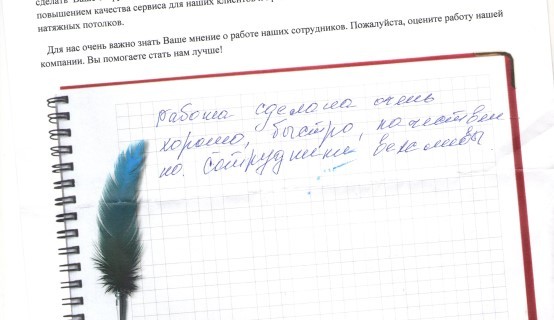 повышением качества сервиса для наших
натяжных потолков.
Для нас очень важно знать Ваше мнение о работе наших сотрудников. Пожалуйста, оцените работу нашей
компании. Вы помогаете стать нам лучше!
работа сделана очень
хорошо, быстро, качествен
но. Сотрудники вежливы.